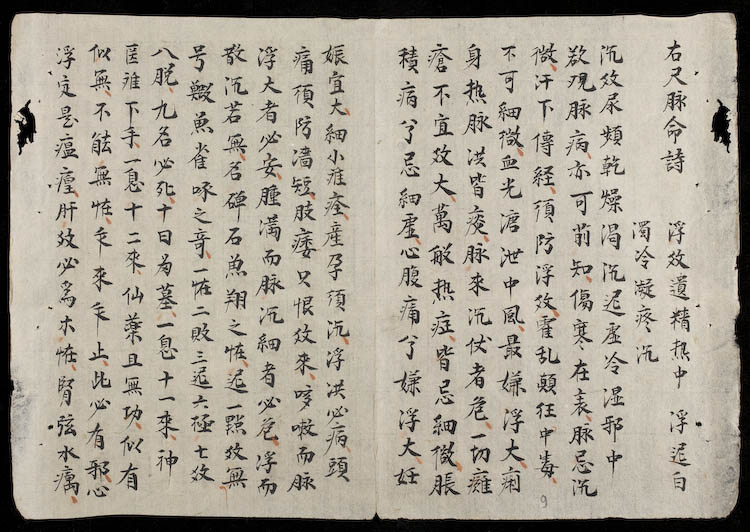 右尺脉命詩 浮效遺精热中 浮迟白
濁冷凝疼沉
沉效尿頻乾燥渴沉迟虚冷湿邪中
欲观脉病亦可前知傷寒在表脉忌沉
微汗下傳経須防浮效霍乱顛狂中毒
不可細微血光溏泄中風最嫌浮大痢
身热脉洪皆痰脉來沉伏者危一切癰
瘡不宜效大萬般热症皆忌細微脹
積病兮忌細虚心腹痛兮嫌浮大妊
9
娠宜大細小难痊產孕須沉浮洪必病頭
痛須防濇短股痿只恨效來嗽而脉
浮大者必安腫满而脉沉細者必危浮而
散沉若無名碑石魚翔之恠迟一點效無
号鰕魚雀啄之竒一恠二敗三迟六極七效
八脫九名必死十曰為墓一息十一來神
医难下手一息十二來仙藥且無功似有
似無不能無恠乍來乍止此必有邪心
浮定是瘟肝效必為木恠腎弦水癘